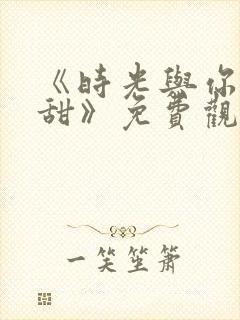 《時光與你
甜》免費觀
一笑笙簫